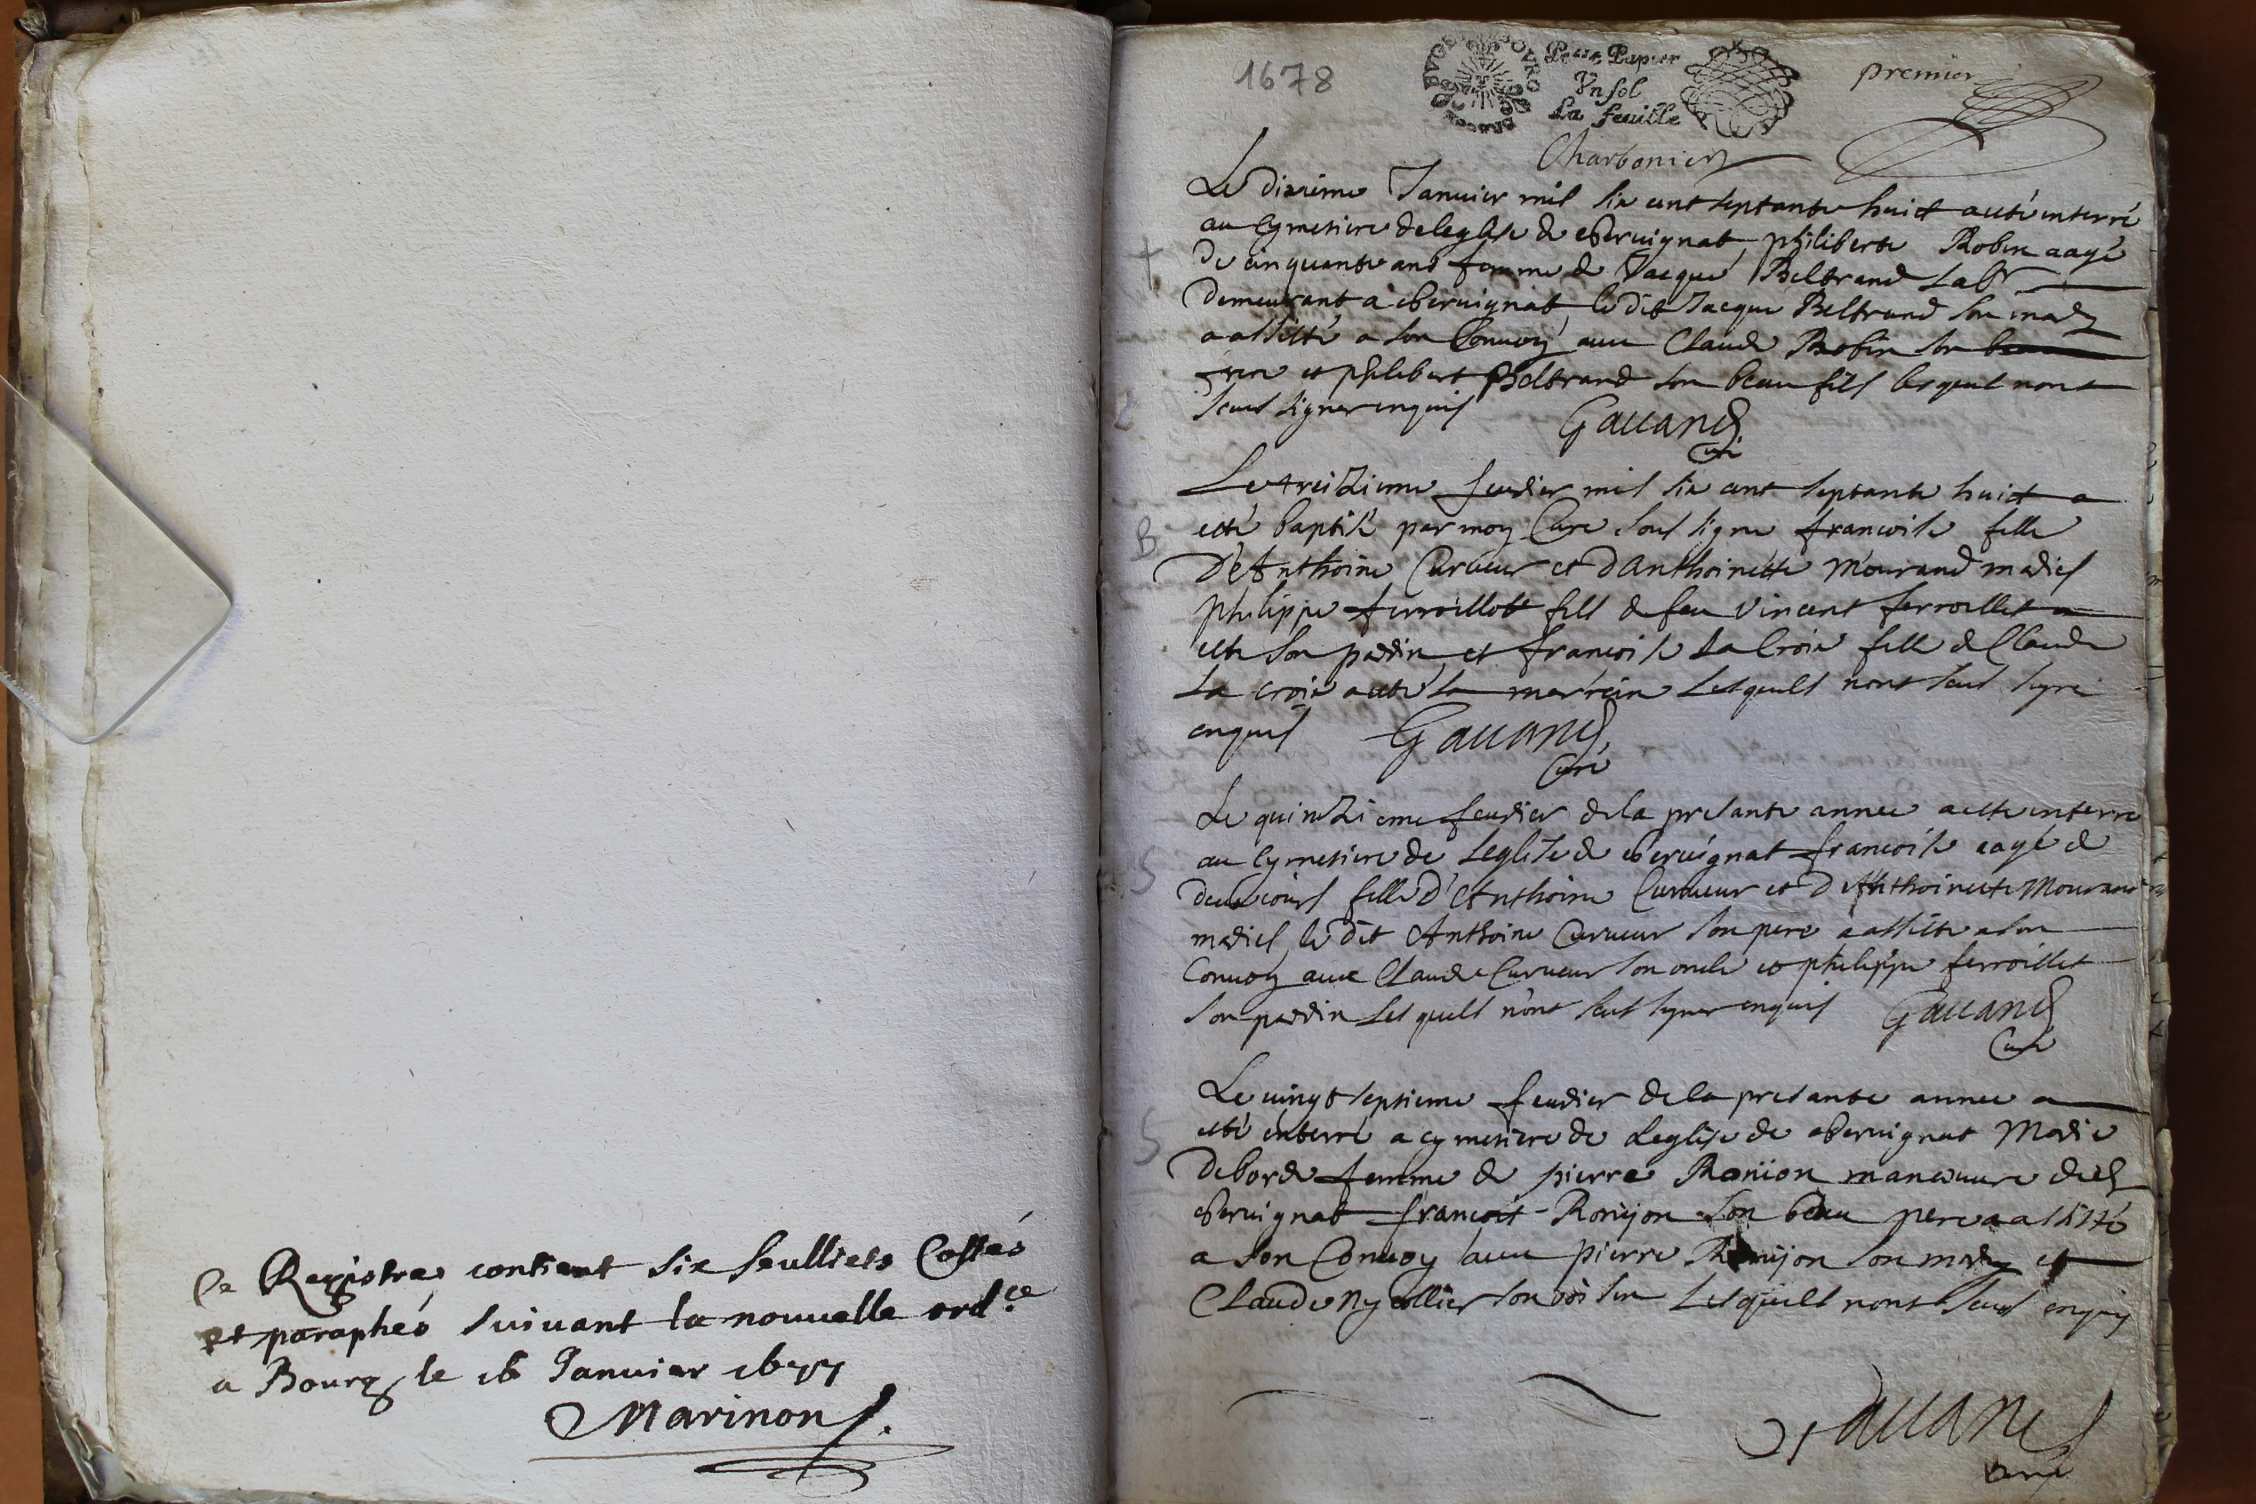 Ce Registre contient six feulliets Cottés
et paraphés suivant la nouvelle ord.ce
a Bourg le 16 Janvier 1677
Marinon
1678
Petit Papier
Vn sol
La feuille
premier
Charbonier
Le dixieme Januier mil six cent septante huict a esté interré
au Cymetiere de leglise de cheruignat philiberte Robin aagé
de cinquante ans femme de Jacque Beltrand labr
demeurant a cheruignat le dit Jacque Beltrand son mary
a assisté a son Conuoy auec Claude Robin son
frere et philibert Beltrand son beau fils lesquel nont
sceus signer enquis
Gauand
Curé
Le treizieme feurier mil six cent septante huict a
esté baptisé par moy Curé sous signe francoise fille
D'Anthoine Curueur et D'Anthoinette Mourand mariés
philippe ferroillet fils de feu Vincent ferroillet a
esté son parrin et francoise La Croix fille de Claude
La Croix a esté sa marrein Lesquels nont sceus signé
enquis
Gauand
Curé
B
Le quinzieme feurier de la presante annee a esté enterré
au Cymetiere de Leglise de cheruignat francoise aagé de
deux iours fille D'Anthoine Curueur et D'Anthoinette Mourand
mariés le dit Anthoine Curueur son pere a assisté a son
Conuoy auec Claude Curueur son oncle et philippe ferroillet
son parrin Lesquels n'ont sceus signer enquis
Gauand
Curé
S
Le uingt septieme feurier de la presante annee a
esté enterré a cymetiere de Leglise de cheruignat Marie
Deborde femme de pierre Ronijon maneuure du dt
cheruignat francois Ronijon son beau pere a assisté
a son Conuoy auec pierre Ronijon son mary et
Claude Nycollier son voisin Lesquels nont sceus enquis
Gauand
Curé
S